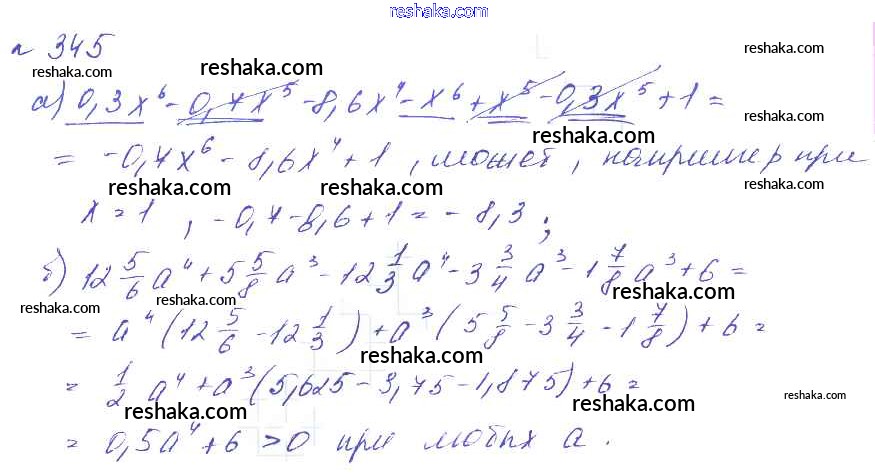 reshaka.com
№ 345
reshaka.com reshaka.com reshaka.com
а) 0,3x⁶ - 0,7x⁵ - 8,6x⁴ - x⁶ + x⁵ - 0,3x⁵ + 1 =
reshaka.com reshaka.com reshaka.com
= -0,7x⁶ - 8,6x⁴ + 1 , может, например при
reshaka.com reshaka.com reshaka.com
x = 1 , -0,7 - 8,6 + 1 = - 8,3 ;
б) 12 5/6 a⁴ + 5 5/8 a³ - 12 1/3 a⁴ - 3 3/4 a³ - 1 7/8 a³ + 6 =
reshaka.com reshaka.com reshaka.com
= a⁴ (12 5/6 - 12 1/3) + a³ (5 5/8 - 3 3/4 - 1 7/8) + 6 =
reshaka.com
= 1/2 a⁴ + a³ (5,625 - 3,75 - 1,875) + 6 =
reshaka.com reshaka.com reshaka.com
= 0,5a⁴ + 6 > 0 при любых a .